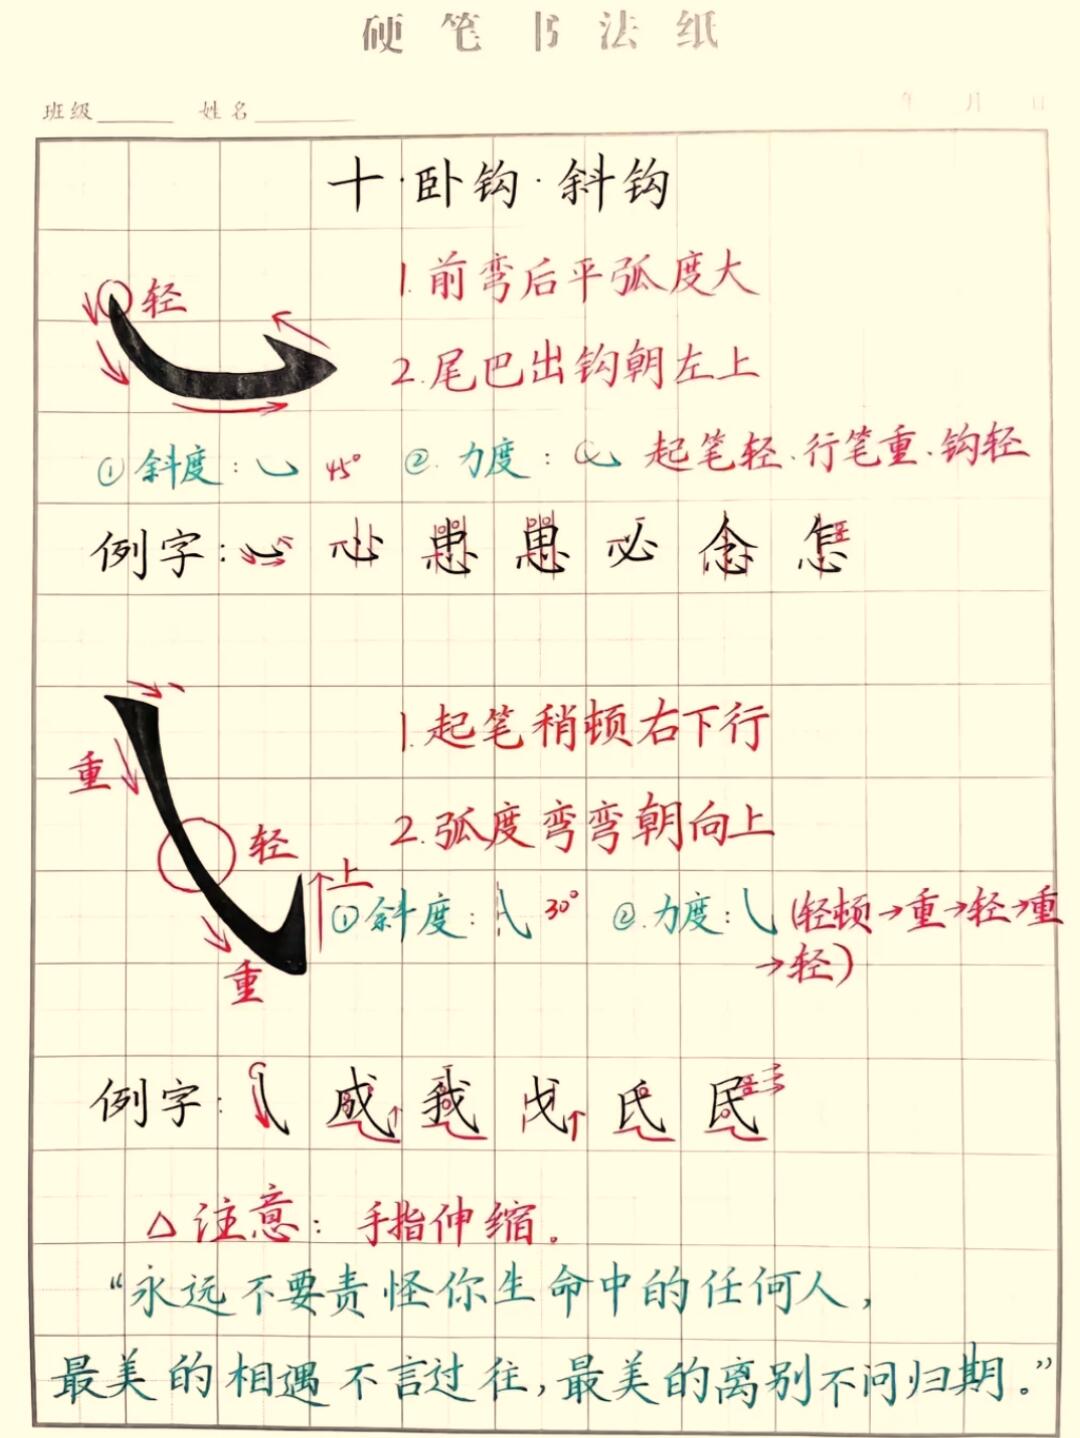 硬笔书法纸
班级 姓名 年 月 日
十·卧钩·斜钩
1.前弯后平弧度大
轻
2.尾巴出钩朝左上
①斜度: 45° ②.力度: 起笔轻.行笔重.钩轻
例字: 心 患 患 必 念 怎
1.起笔稍顿右下行
重
2.弧度弯弯朝向上
轻
上
①斜度: 30° ②.力度: (轻顿→重→轻→重
→轻)
重
例字: 成 我 戈 氏 民
△注意: 手指伸缩。
“永远不要责怪你生命中的任何人,
最美的相遇不言过往,最美的离别不问归期。”